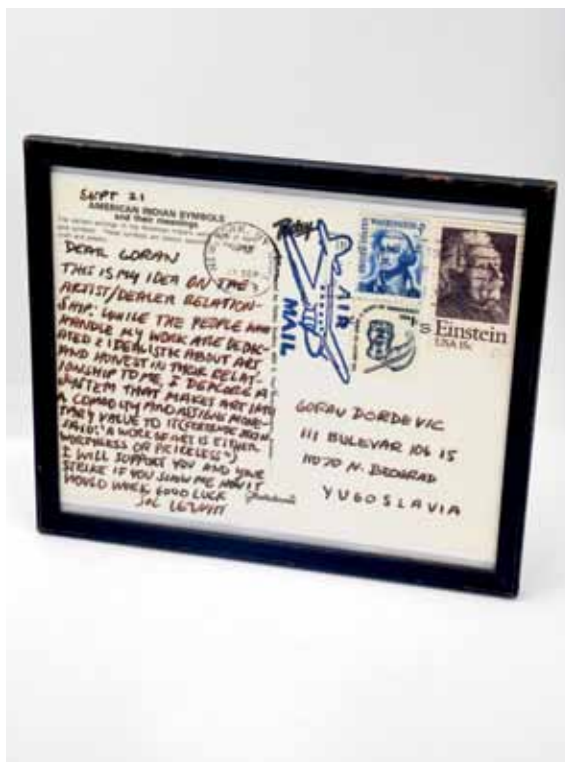 SEPT 21
AMERICAN INDIAN SYMBOLS
and their meanings
DEAR GORAN
THIS IS MY IDEA ON THE
ARTIST/DEALER RELATION-
SHIP. WHILE THE PEOPLE WHO
HANDLE MY WORK ARE DEDIC-
ATED & IDEALISTIC ABOUT ART
AND HONEST IN THEIR RELAT-
IONSHIP TO ME, I DEPLORE A
SYSTEM THAT MAKES ART INTO
A COMODITY AND ASSIGNS MONE-
TARY VALUE TO IT
SAID: "A WORK OF ART IS EITHER
WORTHLESS OR PRICELESS")
I WILL SUPPORT YOU AND YOUR
STRIKE IF YOU SHOW ME HOW IT
WOULD WORK GOOD LUCK
SOL LEWITT
AIR
MAIL
WASHINGTON
Einstein
USA 15c
GORAN DORDEVIC
111 BULEVAR 106 15
11070 N. BEOGRAD
YUGOSLAVIA